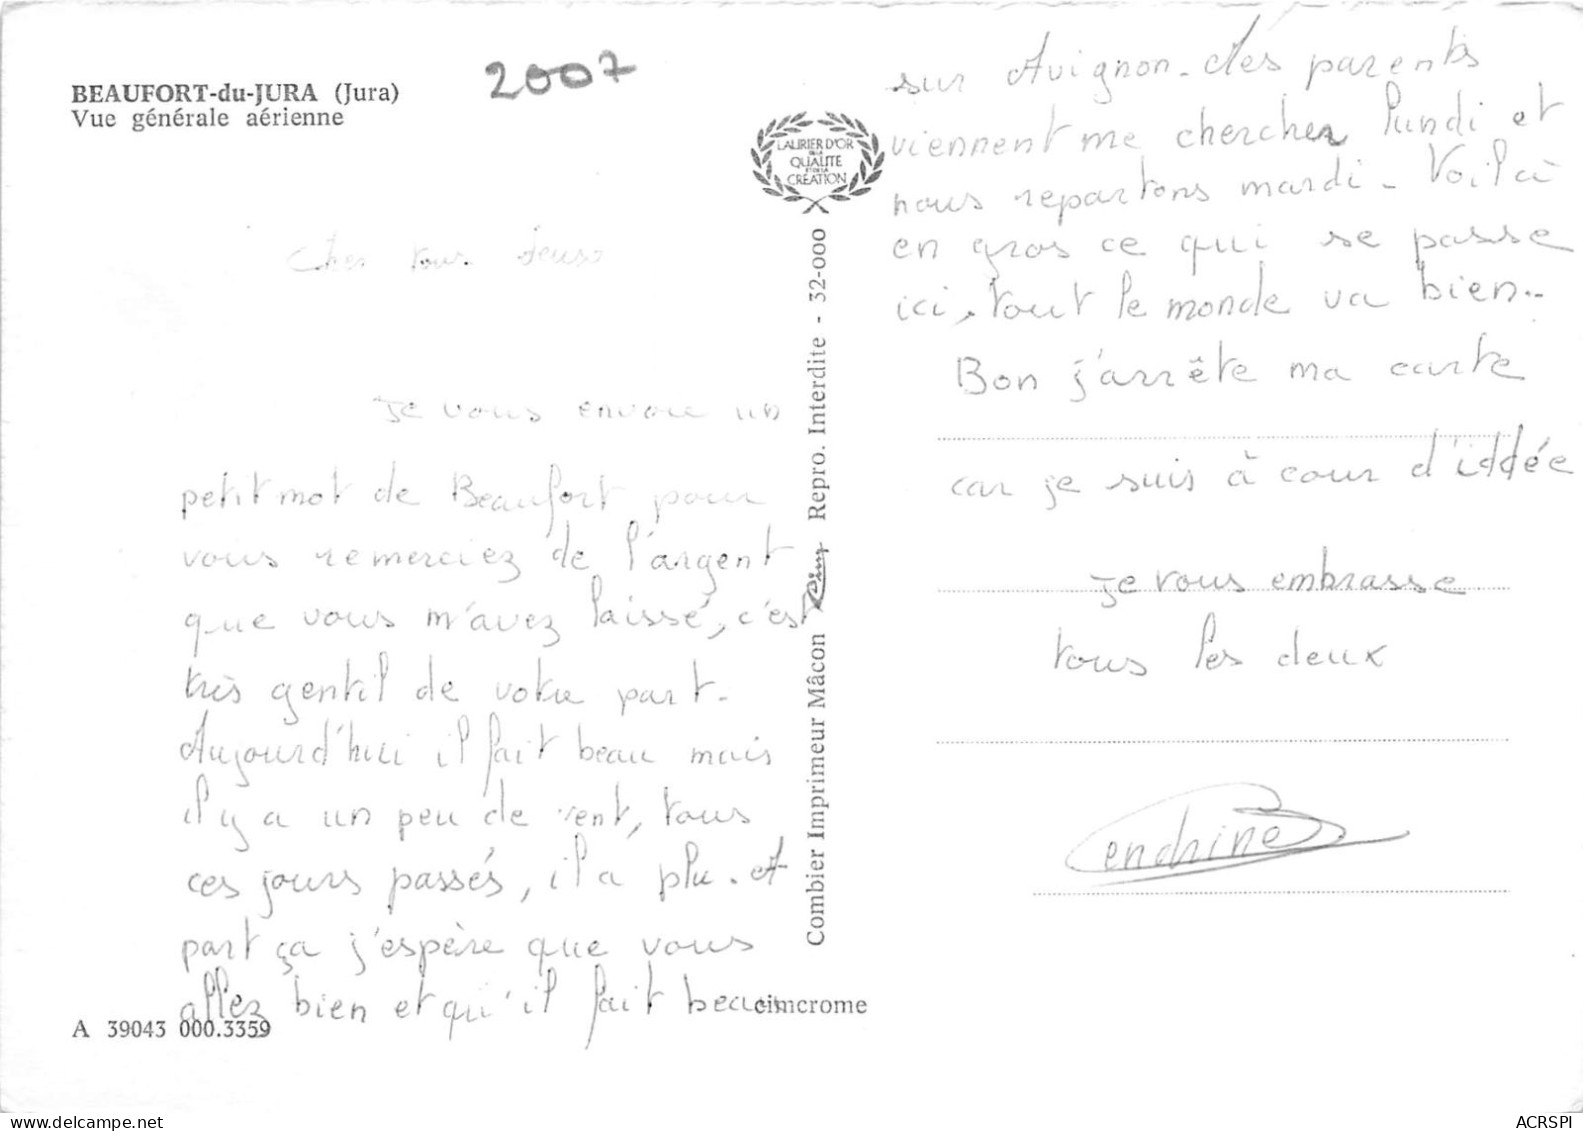 BEAUFORT-du-JURA (Jura)
Vue générale aérienne
2007
Cher tous deux
Je vous envoie un
petit mot de Beaufort pour
vous remerciez de l'argent
que vous m'avez laissé, c'est
très gentil de votre part.
Aujourd'hui il fait beau mais
il y a un peu de vent, tous
ces jours passés, il a plu. A
part ça j'espère que vous
allez bien et qu'il fait beau
A 39043 000.3359
cimcrome
LAURIER D'OR
DE LA
QUALITE
ET DE LA
CREATION
Combier Imprimeur Mâcon Cim Repro. Interdite - 32-000
sur Avignon. Mes parents
viennent me chercher lundi et
nous repartons mardi. Voilà
en gros ce qui se passe
ici, tout le monde va bien..
Bon j'arrête ma carte
car je suis à cour d'iddée
Je vous embrasse
tous les deux
Cendrine
ACRSPI